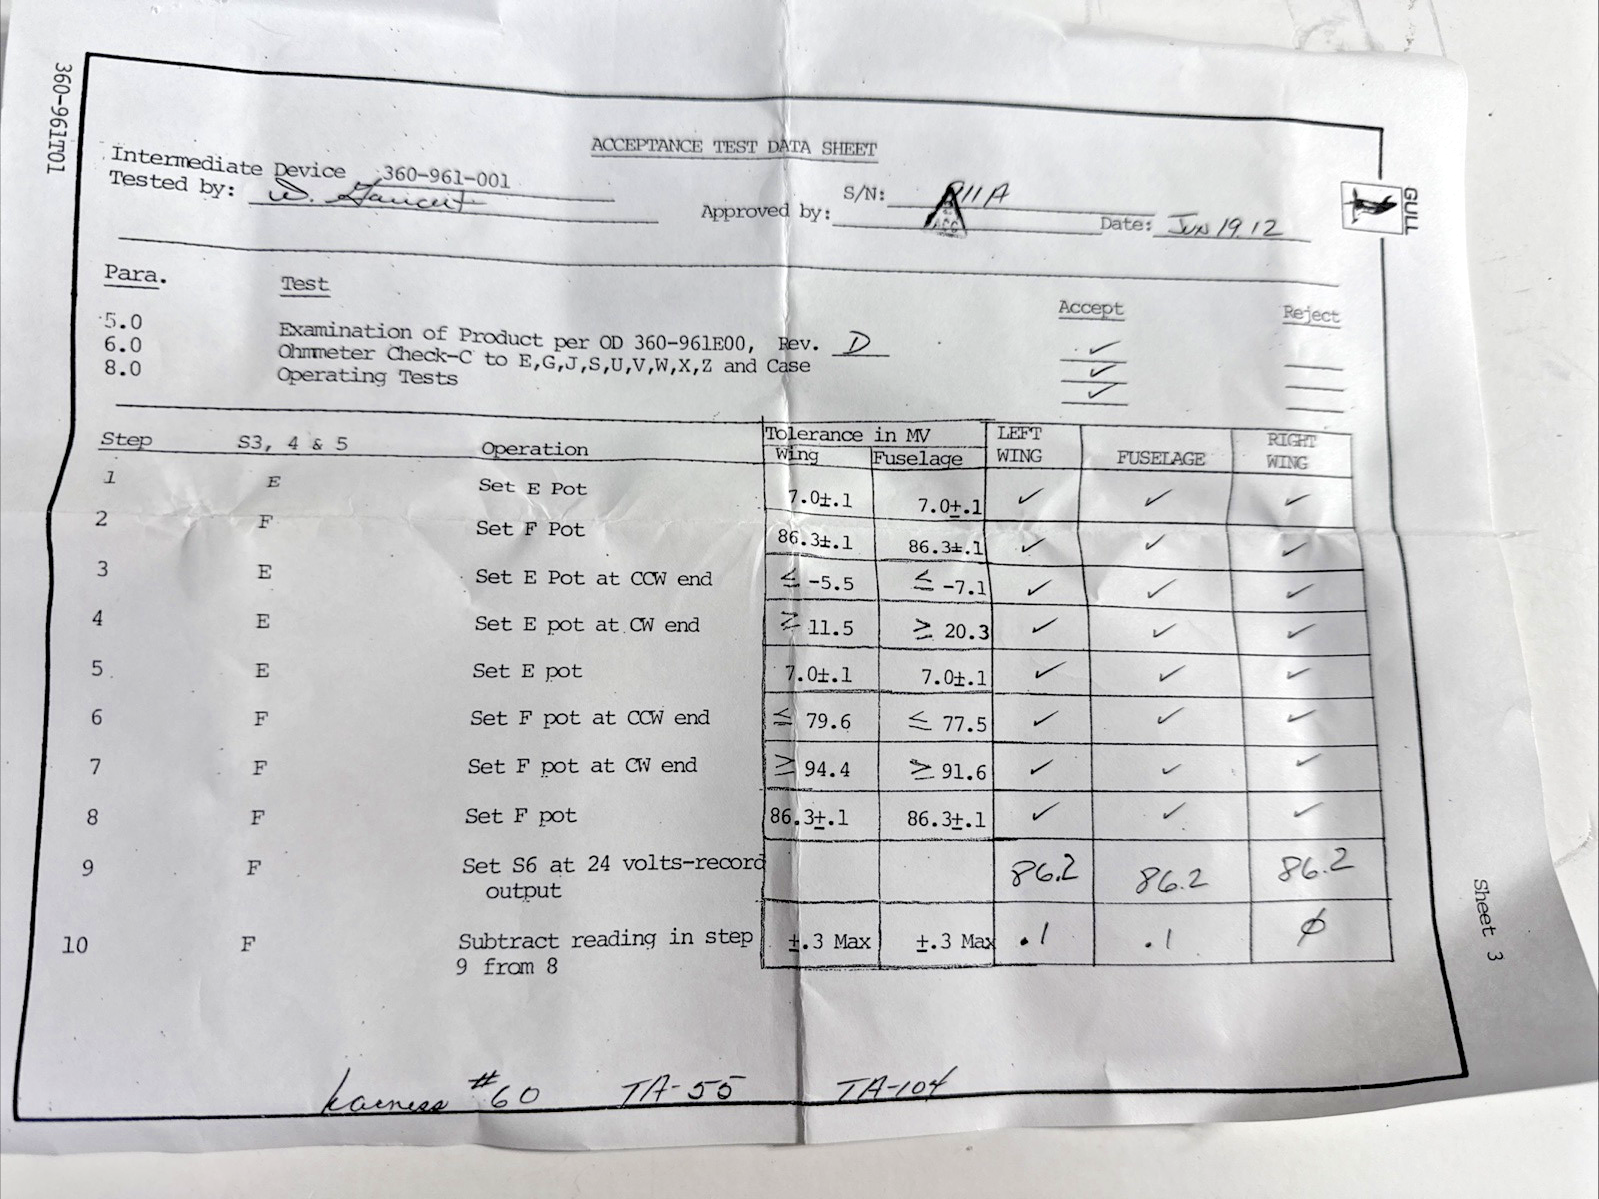 360-961T01
ACCEPTANCE TEST DATA SHEET
Intermediate Device 360-961-001
S/N: 211A
Tested by:
Approved by: Date: JUN 19.12
GULL
Para. Test Accept Reject
5.0 Examination of Product per OD 360-961E00, Rev. D ✓
6.0 Ohmmeter Check-C to E,G,J,S,U,V,W,X,Z and Case ✓
8.0 Operating Tests ✓
Step S3, 4 & 5 Operation Tolerance in MV LEFT WING FUSELAGE RIGHT WING
Wing Fuselage
1 E Set E Pot 7.0±.1 7.0±.1 ✓ ✓ ✓
2 F Set F Pot 86.3±.1 86.3±.1 ✓ ✓ ✓
3 E Set E Pot at CCW end ≤ -5.5 ≤ -7.1 ✓ ✓ ✓
4 E Set E pot at CW end ≥ 11.5 ≥ 20.3 ✓ ✓ ✓
5. E Set E pot 7.0±.1 7.0±.1 ✓ ✓ ✓
6 F Set F pot at CCW end ≤ 79.6 ≤ 77.5 ✓ ✓ ✓
7 F Set F pot at CW end ≥ 94.4 ≥ 91.6 ✓ ✓ ✓
8 F Set F pot 86.3±.1 86.3±.1 ✓ ✓ ✓
9 F Set S6 at 24 volts-record 86.2 86.2 86.2
output
10 F Subtract reading in step ±.3 Max ±.3 Max .1 .1 ϕ
9 from 8
Sheet 3
harness #60 TA-55 TA-104